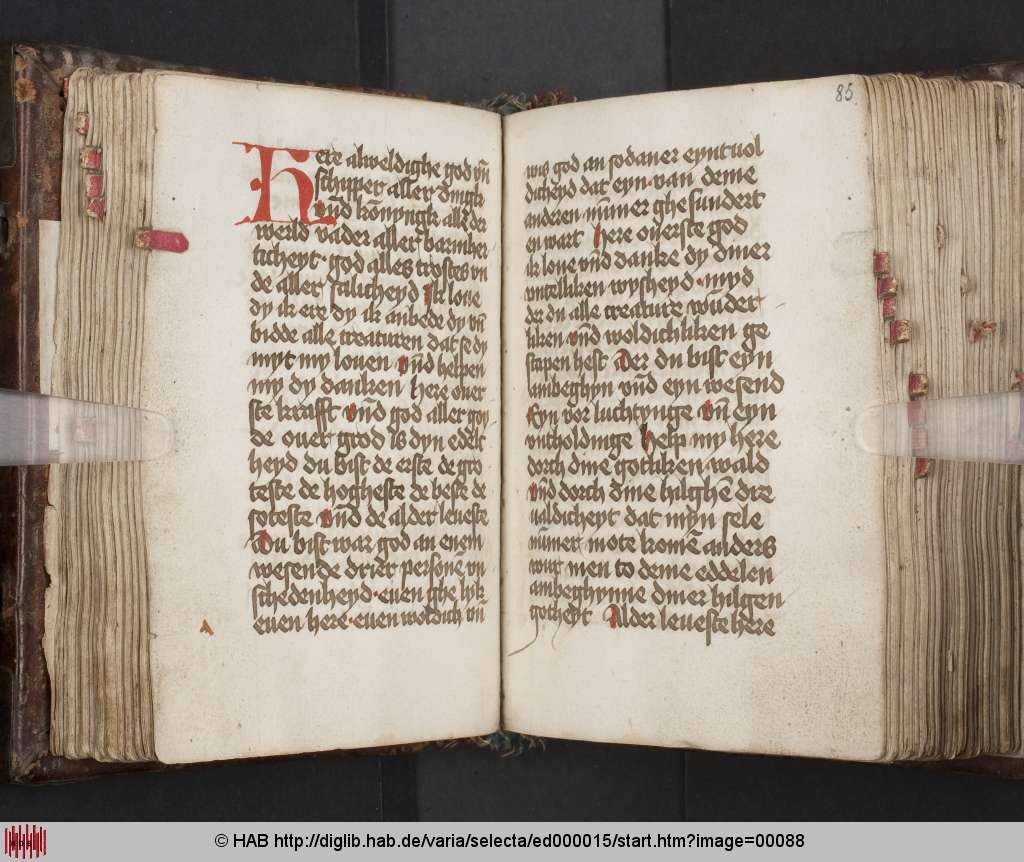 Here alweldighe god vn̄
schipper aller dingk
vnd kōnyngk alle der
werld vader aller barmher
ticheyt · god alles trostes vn̄
de aller salicheyd Ik loue
dy ik ere dy ik anbede dy vn̄
bidde alle creaturen dat se dy
myt my louen vnd helpen
my dy danken here ouer
ste krafft vn̄d god aller goy
de ouer grod is dyn edel
heyd du bist de erste de gro
teste de hogheste de beste de
soteste vn̄d de alder leueste
du bist war god an enem
wesende drier personē vn
schedenheyd · euen ghe lyk
euen here · euen woldich vn̄
85
wis god an sodaner eyntuol
dicheyd dat eyn van deme
anderen nūmer ghe sundert
en wart here ouerste god
ik loue vn̄d danke dy diner
vntelliken wysheyd · myd
der du alle creature wūder
liken vn̄d woldichliken ge
scapen hest der du bist eyn
ambeghyn vn̄d eyn wesend
Eyn vor luchtynge vn̄ eyn
vntholdinge help my here
dorch dine gotliken wald
vnd dorch dine hilghen dre
ualdicheyt dat myn sele
nūmer mote komē anders
wur men to deme eddelen
ambeghynne diner hilgen
gotheyt Alder leueste here
© HAB http://diglib.hab.de/varia/selecta/ed000015/start.htm?image=00088